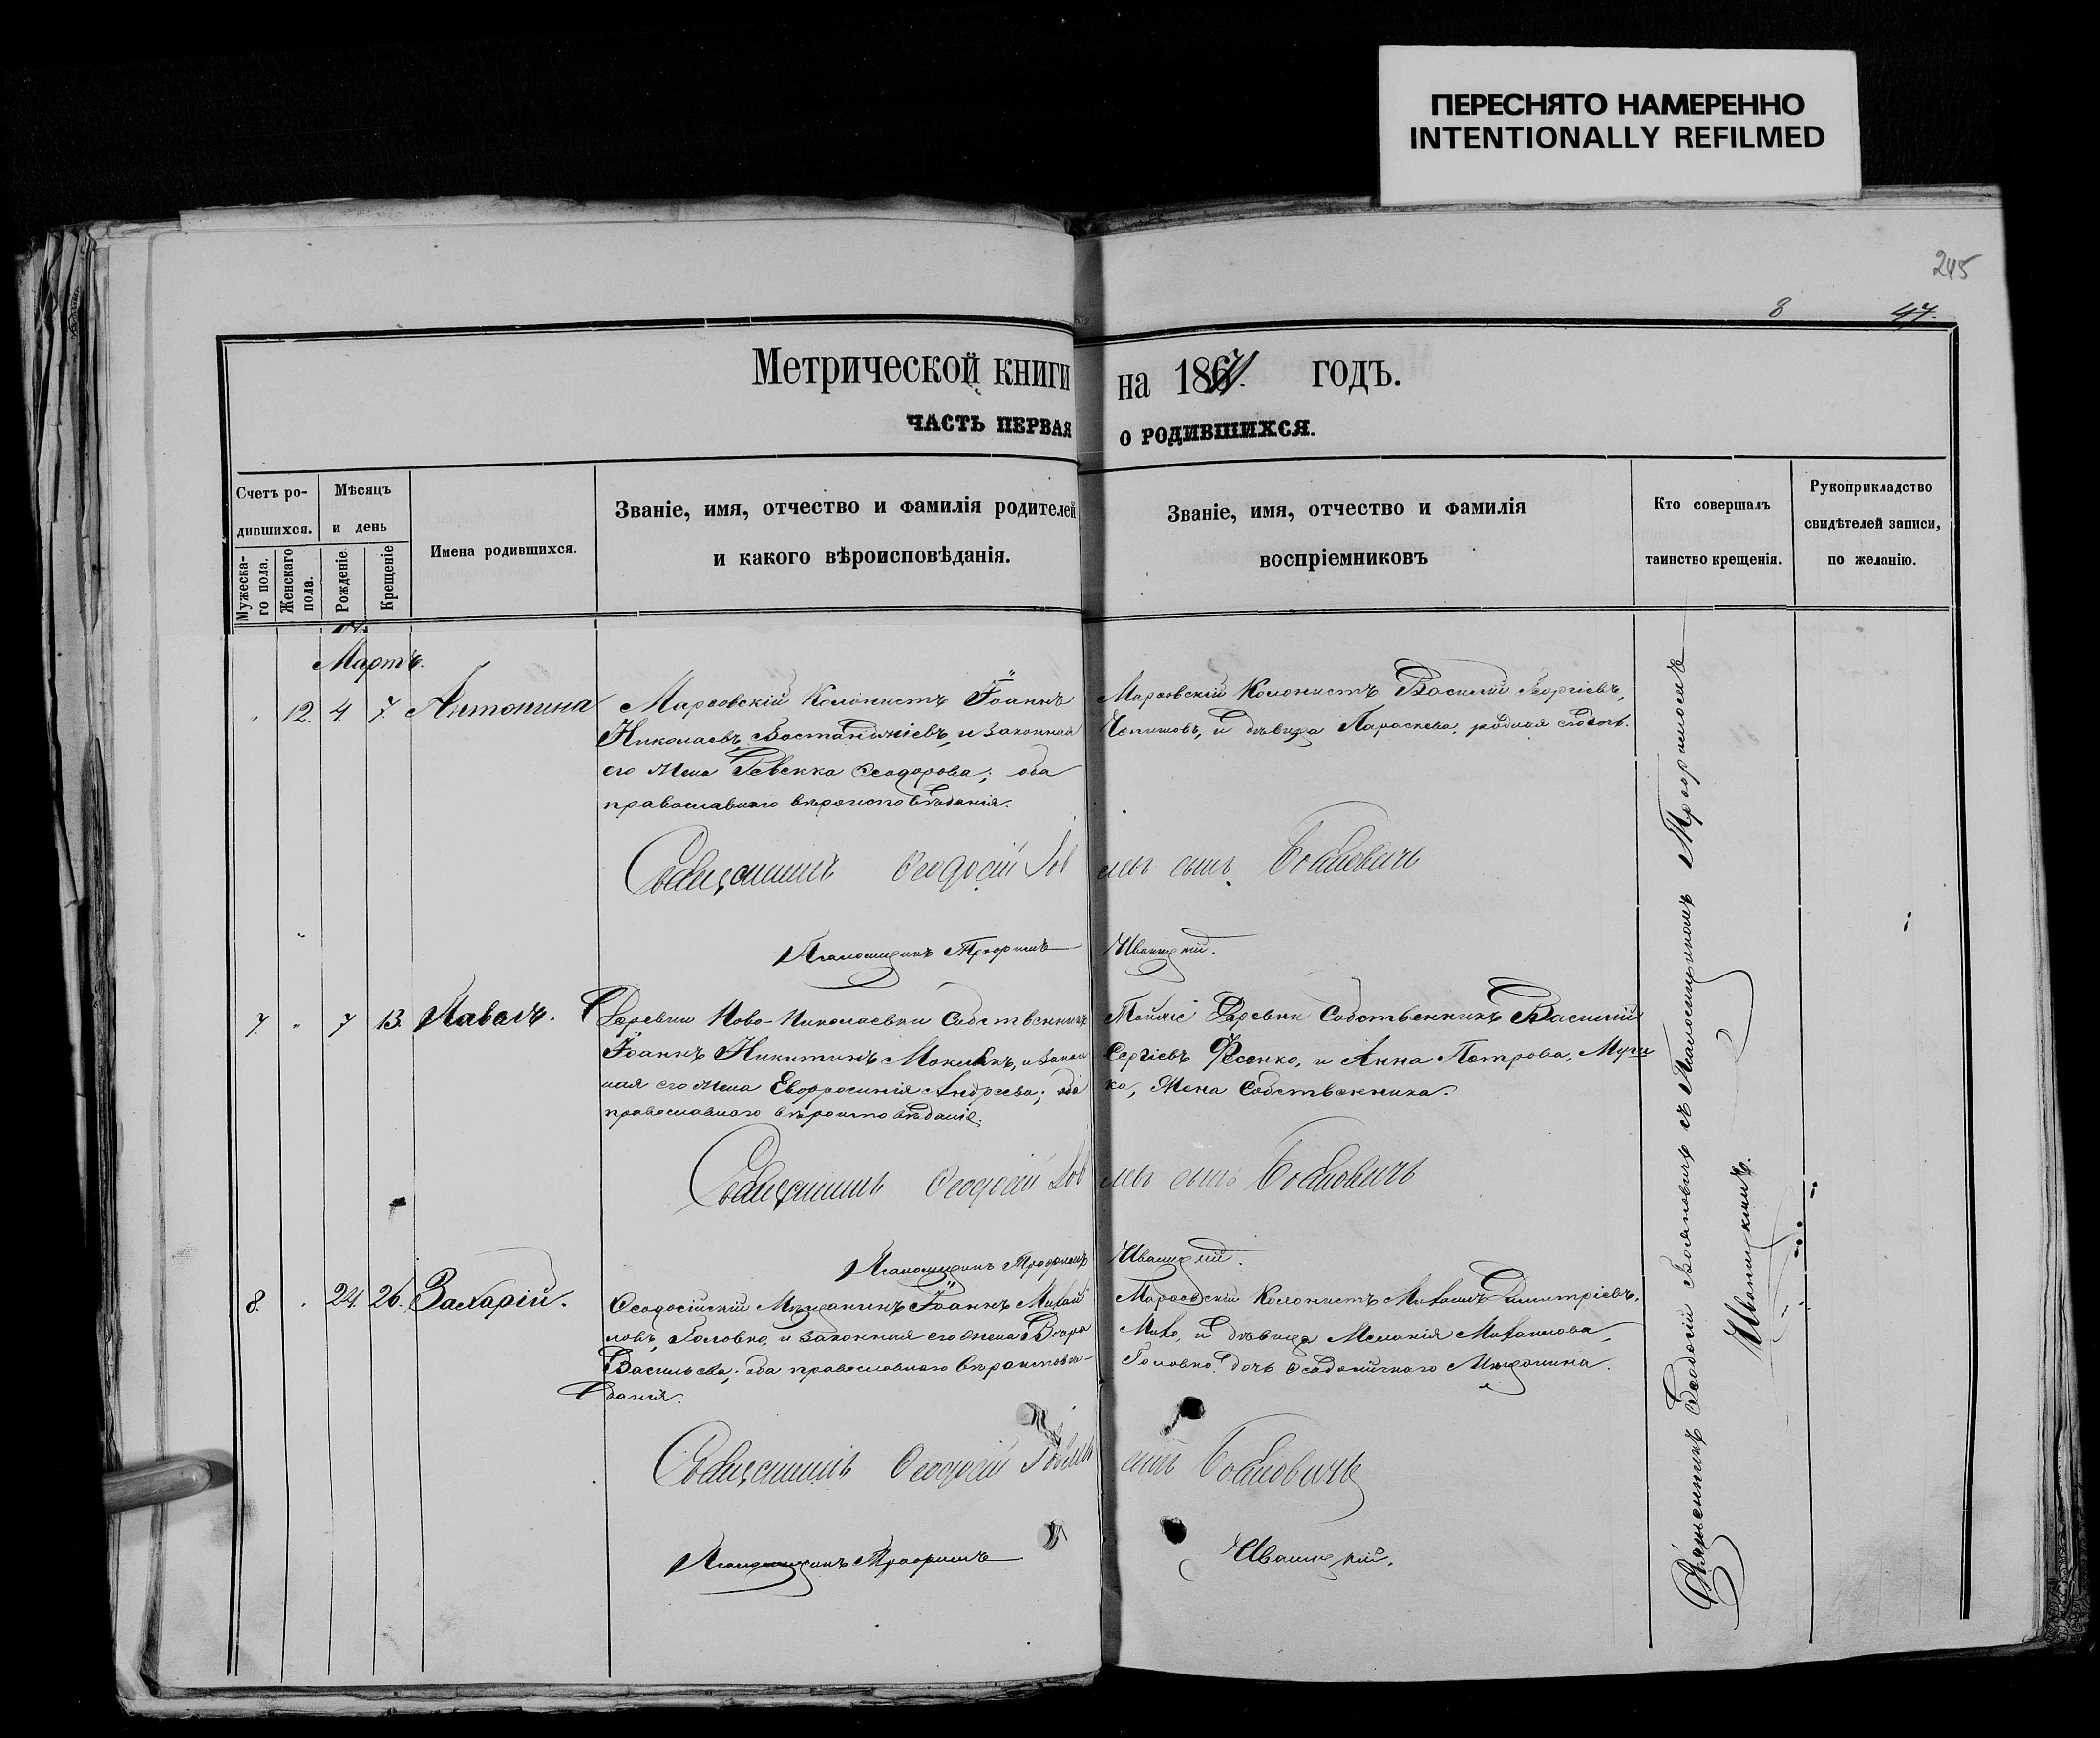 ПЕРЕСНЯТО НАМЕРЕННО
INTENTIONALLY REFILMED
245
8 47.
Метрической книги на 1871. годъ.
ЧАСТЬ ПЕРВАЯ О РОДИВШИХСЯ.
Счетъ ро-
дившихся.
Мужеска-
го пола.
Женскаго
пола.
Мѣсяцъ
и день
Рожденіе
Крещеніе
Имена родившихся.
Званіе, имя, отчество и фамилія родителей
и какого вѣроисповѣданія.
Званіе, имя, отчество и фамилія
воспріемниковъ
Кто совершалъ
таинство крещенія.
Рукоприкладство
свидѣтелей записи,
по желанію.
Мартъ.
12. 4 7. Антонина
Марѳовскій Колонистъ Іоаннъ
Николаевъ и законная
его жена Ревекка Ѳеодорова; оба
православнаго вѣроисповѣданія.
Марѳовскій Колонистъ Василій Георгіевъ,
и дѣвица Параскева, родная
Священникъ Ѳеодосій сынъ Бояновичъ
Псаломщикъ Трофимъ Иваницкій.
7. " 7 13. Павелъ.
Деревни Ново-Николаевки Собственникъ
Іоаннъ Никитинъ и закон
ная его жена Евфросинія Андреева; оба
православнаго вѣроисповѣданія.
Тойже Деревни Собственникъ Василій
Сергіевъ Фесенко, и Анна Петрова,
ка, жена Собственника.
Священникъ Ѳеодосій сынъ Бояновичъ
Псаломщикъ Трофимъ Иваницкій.
8. 24. 26. Захарій.
Ѳеодосійскій Мѣщанинъ Іоаннъ Михай
ловъ Головко, и законная его жена Вѣра
Васильева; оба православнаго вѣроисповѣ-
данія.
Марѳовскій Колонистъ Михаилъ Димитріевъ,
и дѣвица Меланія Михаилова
Головко дочь Ѳеодосійскаго Мѣщанина.
Священникъ Ѳеодосій сынъ Бояновичъ
Псаломщикъ Трофимъ Иваницкій.
Священникъ Ѳеодосій Бояновичъ съ Псаломщикомъ Трофимомъ
Иваницкимъ.